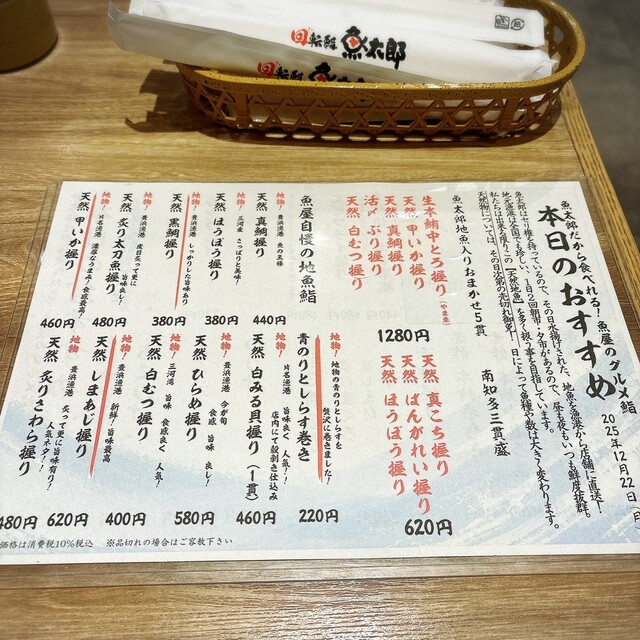 回転鮨 魚太郎
回転鮨 魚太郎
魚太郎だから食べれる！魚屋のグルメ鮨
本日のおすすめ
2025年12月22日（月）
魚太郎はセリ権を持っているので、その日水揚げされた、地魚を漁港から店舗に直送！
地元漁港は全国でも珍しい、1日2回朝市・夕市があるので、昼も夜もいつも鮮度抜群。
私たちは出来る限りこの【天然地魚】を多く扱う事を目指しています。
天然物については、その日次第の売切れ御免！日によって魚種や数は大きく変わります。
魚太郎地魚入りおまかせ5貫
生本鮪中とろ握り
天然 甲いか握り
天然 真鯛握り
活〆 ぶり握り
天然 白むつ握り
1280円
南知多三貫盛
天然 真こち握り
天然 ばんがれい握り
天然 ほうぼう握り
620円
魚屋自慢の地魚鮨
地物！ 豊浜漁港 魚の王様
天然 真鯛握り
440円
地物！ 三河産 さっぱりと美味
天然 ほうぼう握り
380円
地物！ 豊浜漁港 しっかりした旨味あり
天然 黒鯛握り
380円
地物！ 豊浜漁港 皮目炙って更に旨味良し！
天然 炙り太刀魚握り
480円
地物！ 片名漁港 濃厚なうまみ！食感最高！
天然 甲いか握り
460円
地物！ 地物の青のりとしらすを贅沢に巻きました！
青のりとしらす巻き
220円
地物！ 片名漁港 旨味良く 人気！！店内にて殻剥き仕込み
天然 白みる貝握り（一貫）
460円
地物！ 豊浜漁港 今が旬 食感 旨味 良し！
天然 ひらめ握り
580円
地物！ 三河湾 旨味 食感良く 人気！
天然 白むつ握り
400円
地物！ 豊浜漁港 新鮮！旨味最高
天然 しまあじ握り
620円
地物！ 豊浜漁港 炙って更に旨味有り！人気ネタ！！
天然 炙りさわら握り
480円
価格は消費税10%税込 ※品切れの場合はご容赦下さい